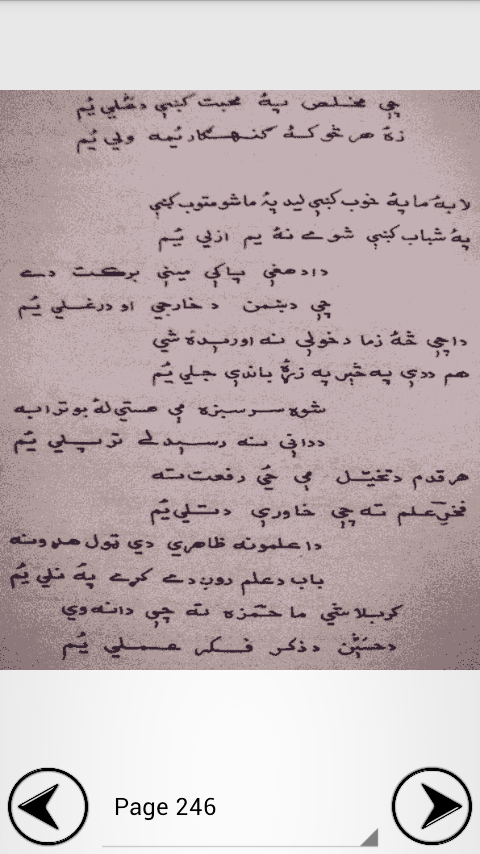 چې مخلص په محبت کښې دعلي يُم
زۀ هر څو کۀ گنهگار يُمه ولي يُم
لا بۀ ما پۀ خوب کښې ليد پۀ ماشومتوب کښې
پۀ شباب کښې شوے نۀ يم ازلي يُم
دا د هغې پاکې مينې برکت دے
چې دښمن د خارجي او درغلي يُم
دا چې څۀ زما د خولې نه اورېدۀ شي
هم ددې په خبر په زړۀ باندې جلي يُم
شوه سر سبزه مې هستي لۀ بوترابه
ددانې نه رسېدلے تر پلي يُم
هر قدم د تخيّل مې ځي رفعت ته
فخرِ علم ته چې خاورې د تلي يُم
دا علمونه ظاهري دي ټول هډونه
باب د علم روڼ دے کړے پۀ نلي يُم
کربلا شي ما حمزه ته چې دانه وي
د حسَين د ذکر فکر عملي يُم
Page 246